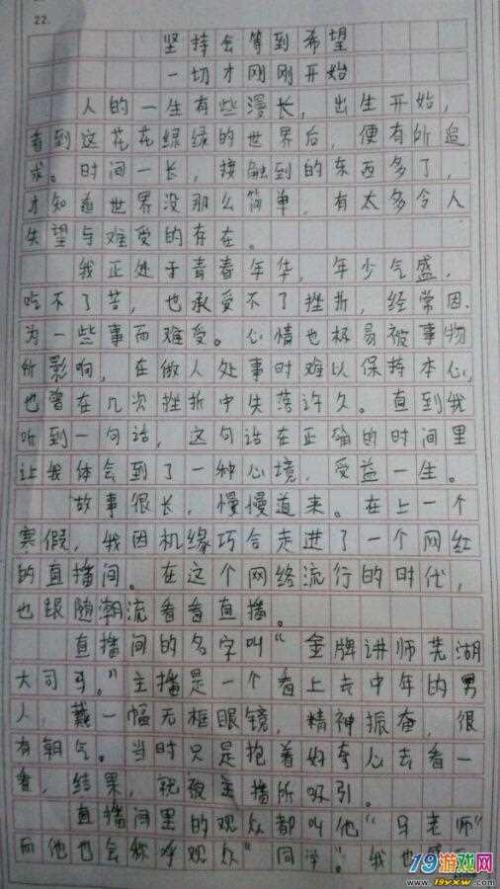 22.
坚持会等到希望
一切才刚刚开始
人的一生有些漫长，出生开始，
看到这花花绿绿的世界后，便有所追
求。时间一长，接触到的东西多了，
才知道世界没那么简单，有太多令人
失望与难受的存在。
我正处于青春年华，年少气盛，
吃不了苦，也承受不了挫折，经常因
为一些事而难受。心情也极易被事物
所影响，在做人处事时难以保持本心，
也曾在几次挫折中失落许久。直到我
听到一句话，这句话在正确的时间里
让我体会到了一种心境，受益一生。
故事很长，慢慢道来。在上一个
寒假，我因机缘巧合走进了一个网红
的直播间。在这个网络流行的时代，
也跟随潮流看看直播。
直播间的名字叫“金牌讲师芜湖
大司马。”主播是一个看上去中年的男
人，戴一幅无框眼镜，精神振奋，很
有朝气。当时只是抱着好奇心去看一
看，结果，就被主播所吸引。
直播间里的观众都叫他“马老师”
而他也会称呼观众“同学”。我也
19游戏网
www.19yxw.com